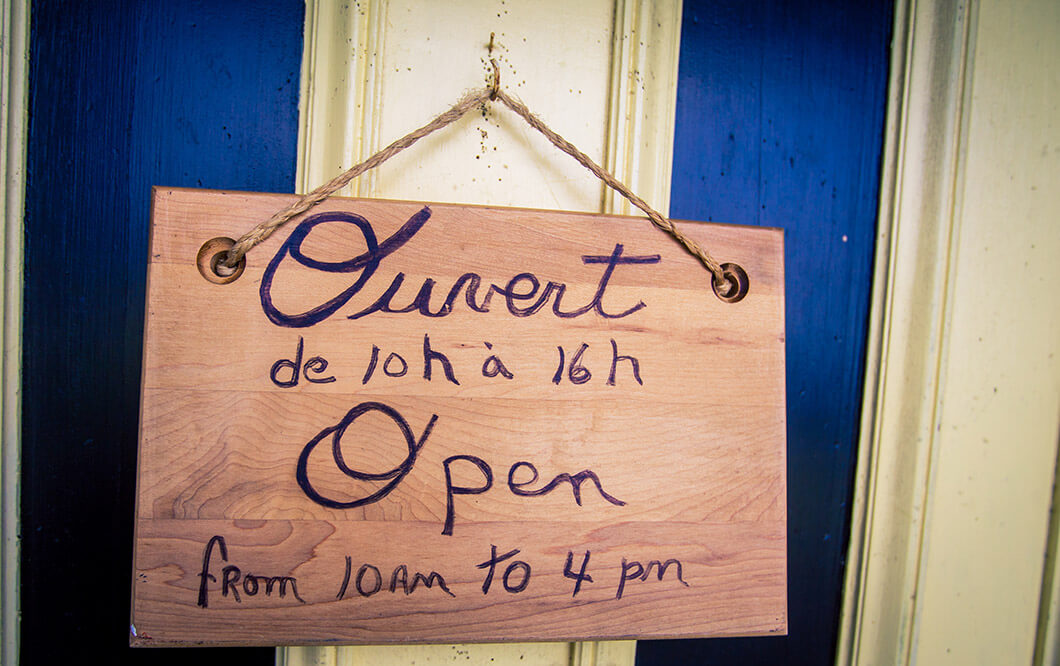 Ouvert
de 10h à 16h
Open
from 10am to 4 pm